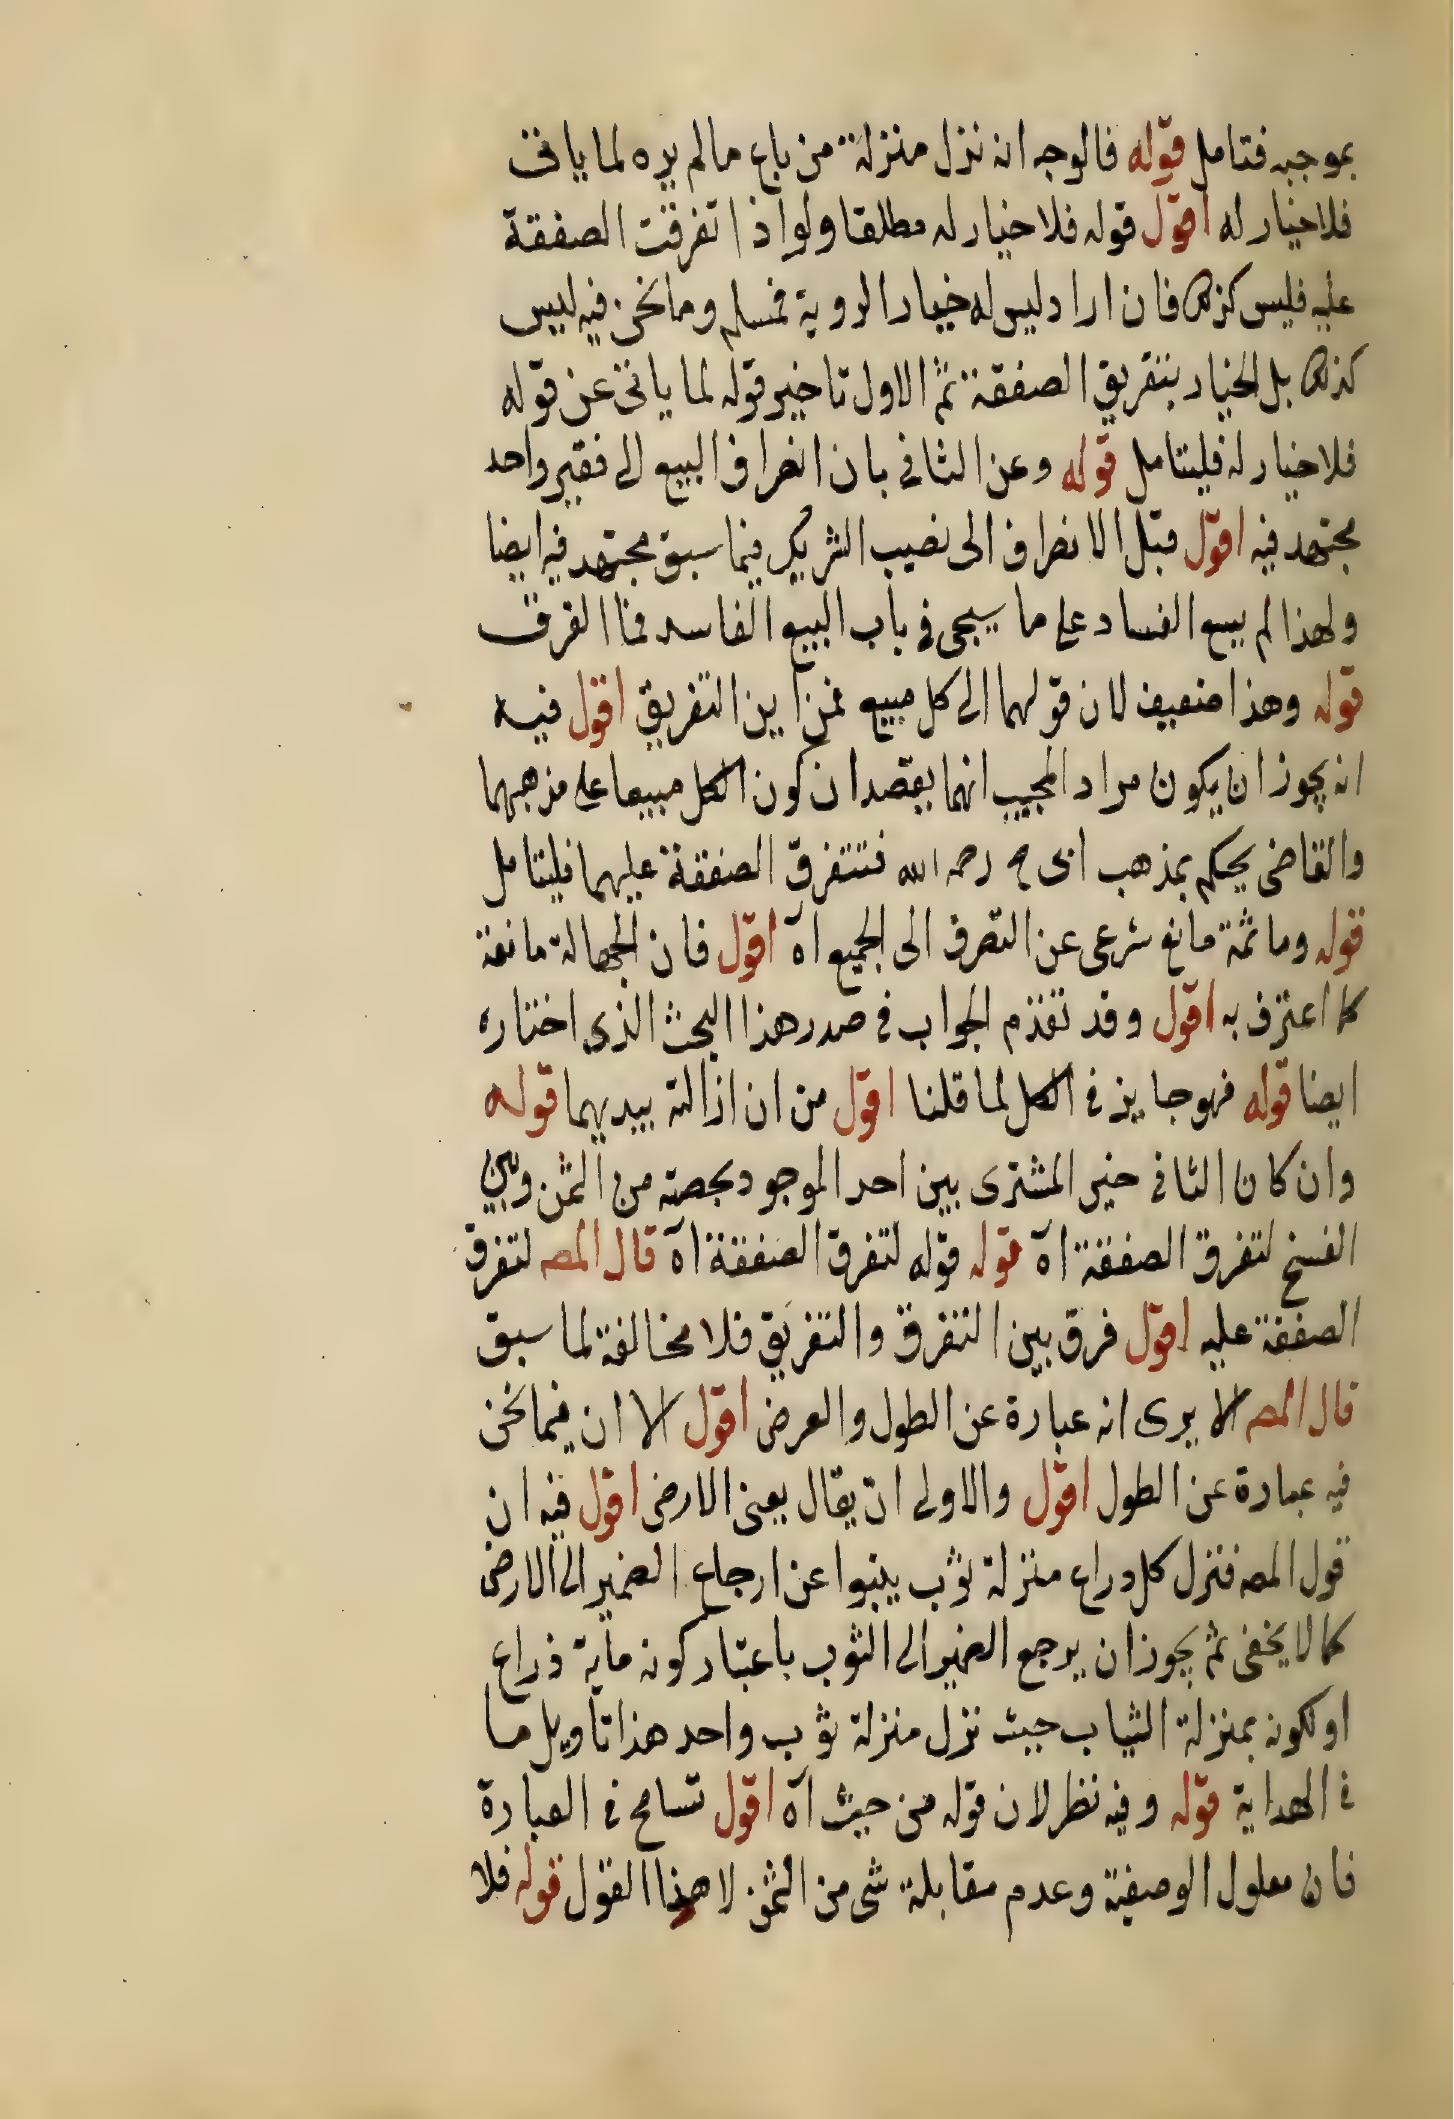 بموجبه فتامل قوله فالوجه انه نزل منزلة من باع مالم يره لما ياتى
فلاخيار له اقول قوله فلاخيار له مطلقا ولو اذا تفرقت الصفقة
عليه فليس كذلك فان اراد ليس له خيار الروية فمسلم وما نحن فيه ليس
كذلك بل الخيار بتفريق الصفقة ثم الاول تاخير قوله لما ياتى عن قوله
فلاخيار له فليتامل قوله وعن الثانى بان انصراف البيع الى فقيز واحد
مجتهد فيه اقول قبل الانصراف الى نصيب الشريك فيما سبق مجتهد فيه ايضا
ولهذا لم يسع الفساد على ما سيجى فى باب البيع الفاسد فما الفرق
قوله وهذا ضعيف لان قولهما الى كل مبيع فمن اين التفريق اقول فيه
انه يجوز ان يكون مراد المجيب انهما يقصدان كون الكل مبيعا على مذهبهما
والقاضى يحكم بمذهب ابى ح رحمه الله فتتفرق الصفقة عليهما فليتامل
قوله وما ثمة مانع شرعى عن التصرف الى الجميع اه اقول فان الجهالة مانعة
كما اعترف به اقول وقد تقدم الجواب فى صدر هذا البحث الذى اختاره
ايضا قوله فهو جايز فى الكل لما قلنا اقول من ان ازالته بيديهما قوله
وان كان الثانى خير المشترى بين احد الموجود بحصته من الثمن وبين
الفسخ لتفرق الصفقة اه قوله قوله لتفرق الصفقة اه قال المص لتفرق
الصفقة عليه اقول فرق بين التفرق والتفريق فلا مخالفة لما سبق
قال المص الا يرى انه عبارة عن الطول والعرض اقول الا ان فيما نحن
فيه عبارة عن الطول اقول والاولى ان يقال يعنى الارض اقول فيه ان
قول المص فنزل كل دراع منزلة ثوب ينبوا عن ارجاع الضمير الى الارض
كما لا يخفى ثم يجوز ان يرجع الضمير الى الثوب باعتبار كونه ماية ذراع
او لكونه بمنزلة الثياب حيث نزل منزلة ثوب واحد هذا تاويل ما
فى الهداية قوله وفيه نظر لان قوله من حيث اه اقول تسامح فى العبارة
فان معلول الوصفية وعدم مقابلة شى من الثمن لا هذا القول قوله فلا